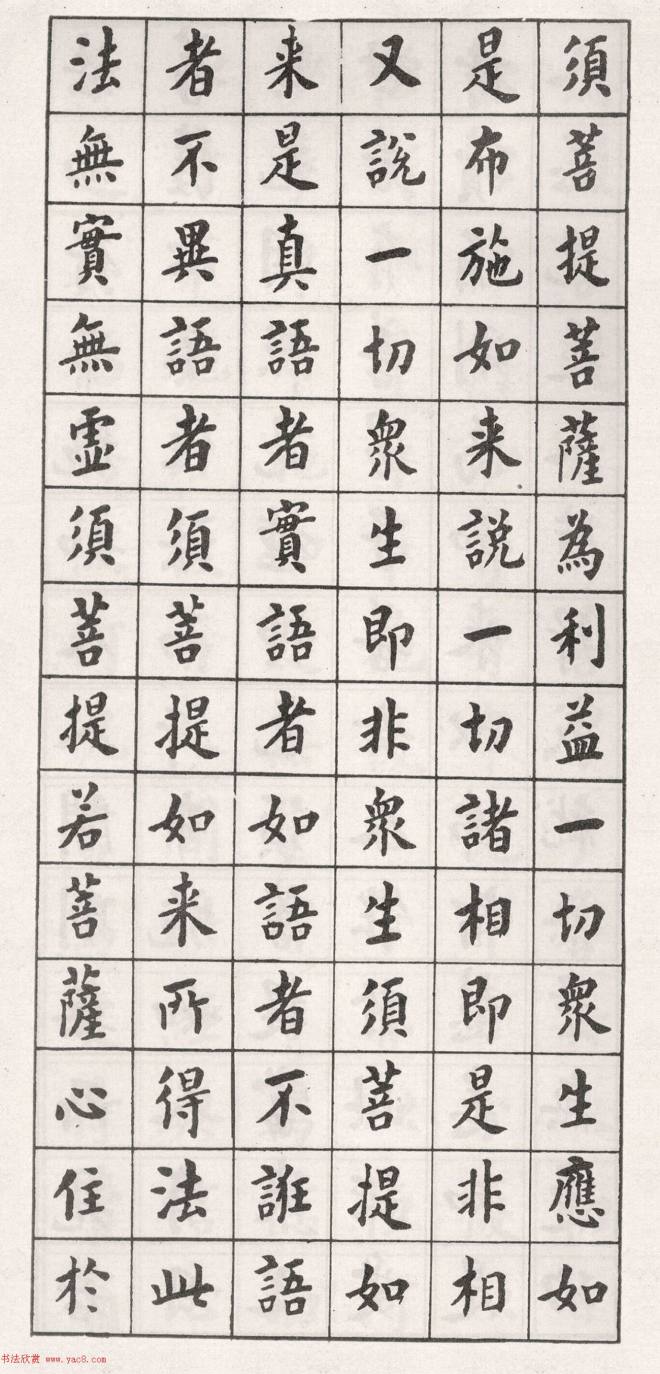 須菩提菩薩為利益一切衆生應如
是布施如来說一切諸相即是非相
又說一切衆生即非衆生須菩提如
来是真語者實語者如語者不誑語
者不異語者須菩提如来所得法此
法無實無虛須菩提若菩薩心住於
书法欣赏 www.yac8.com